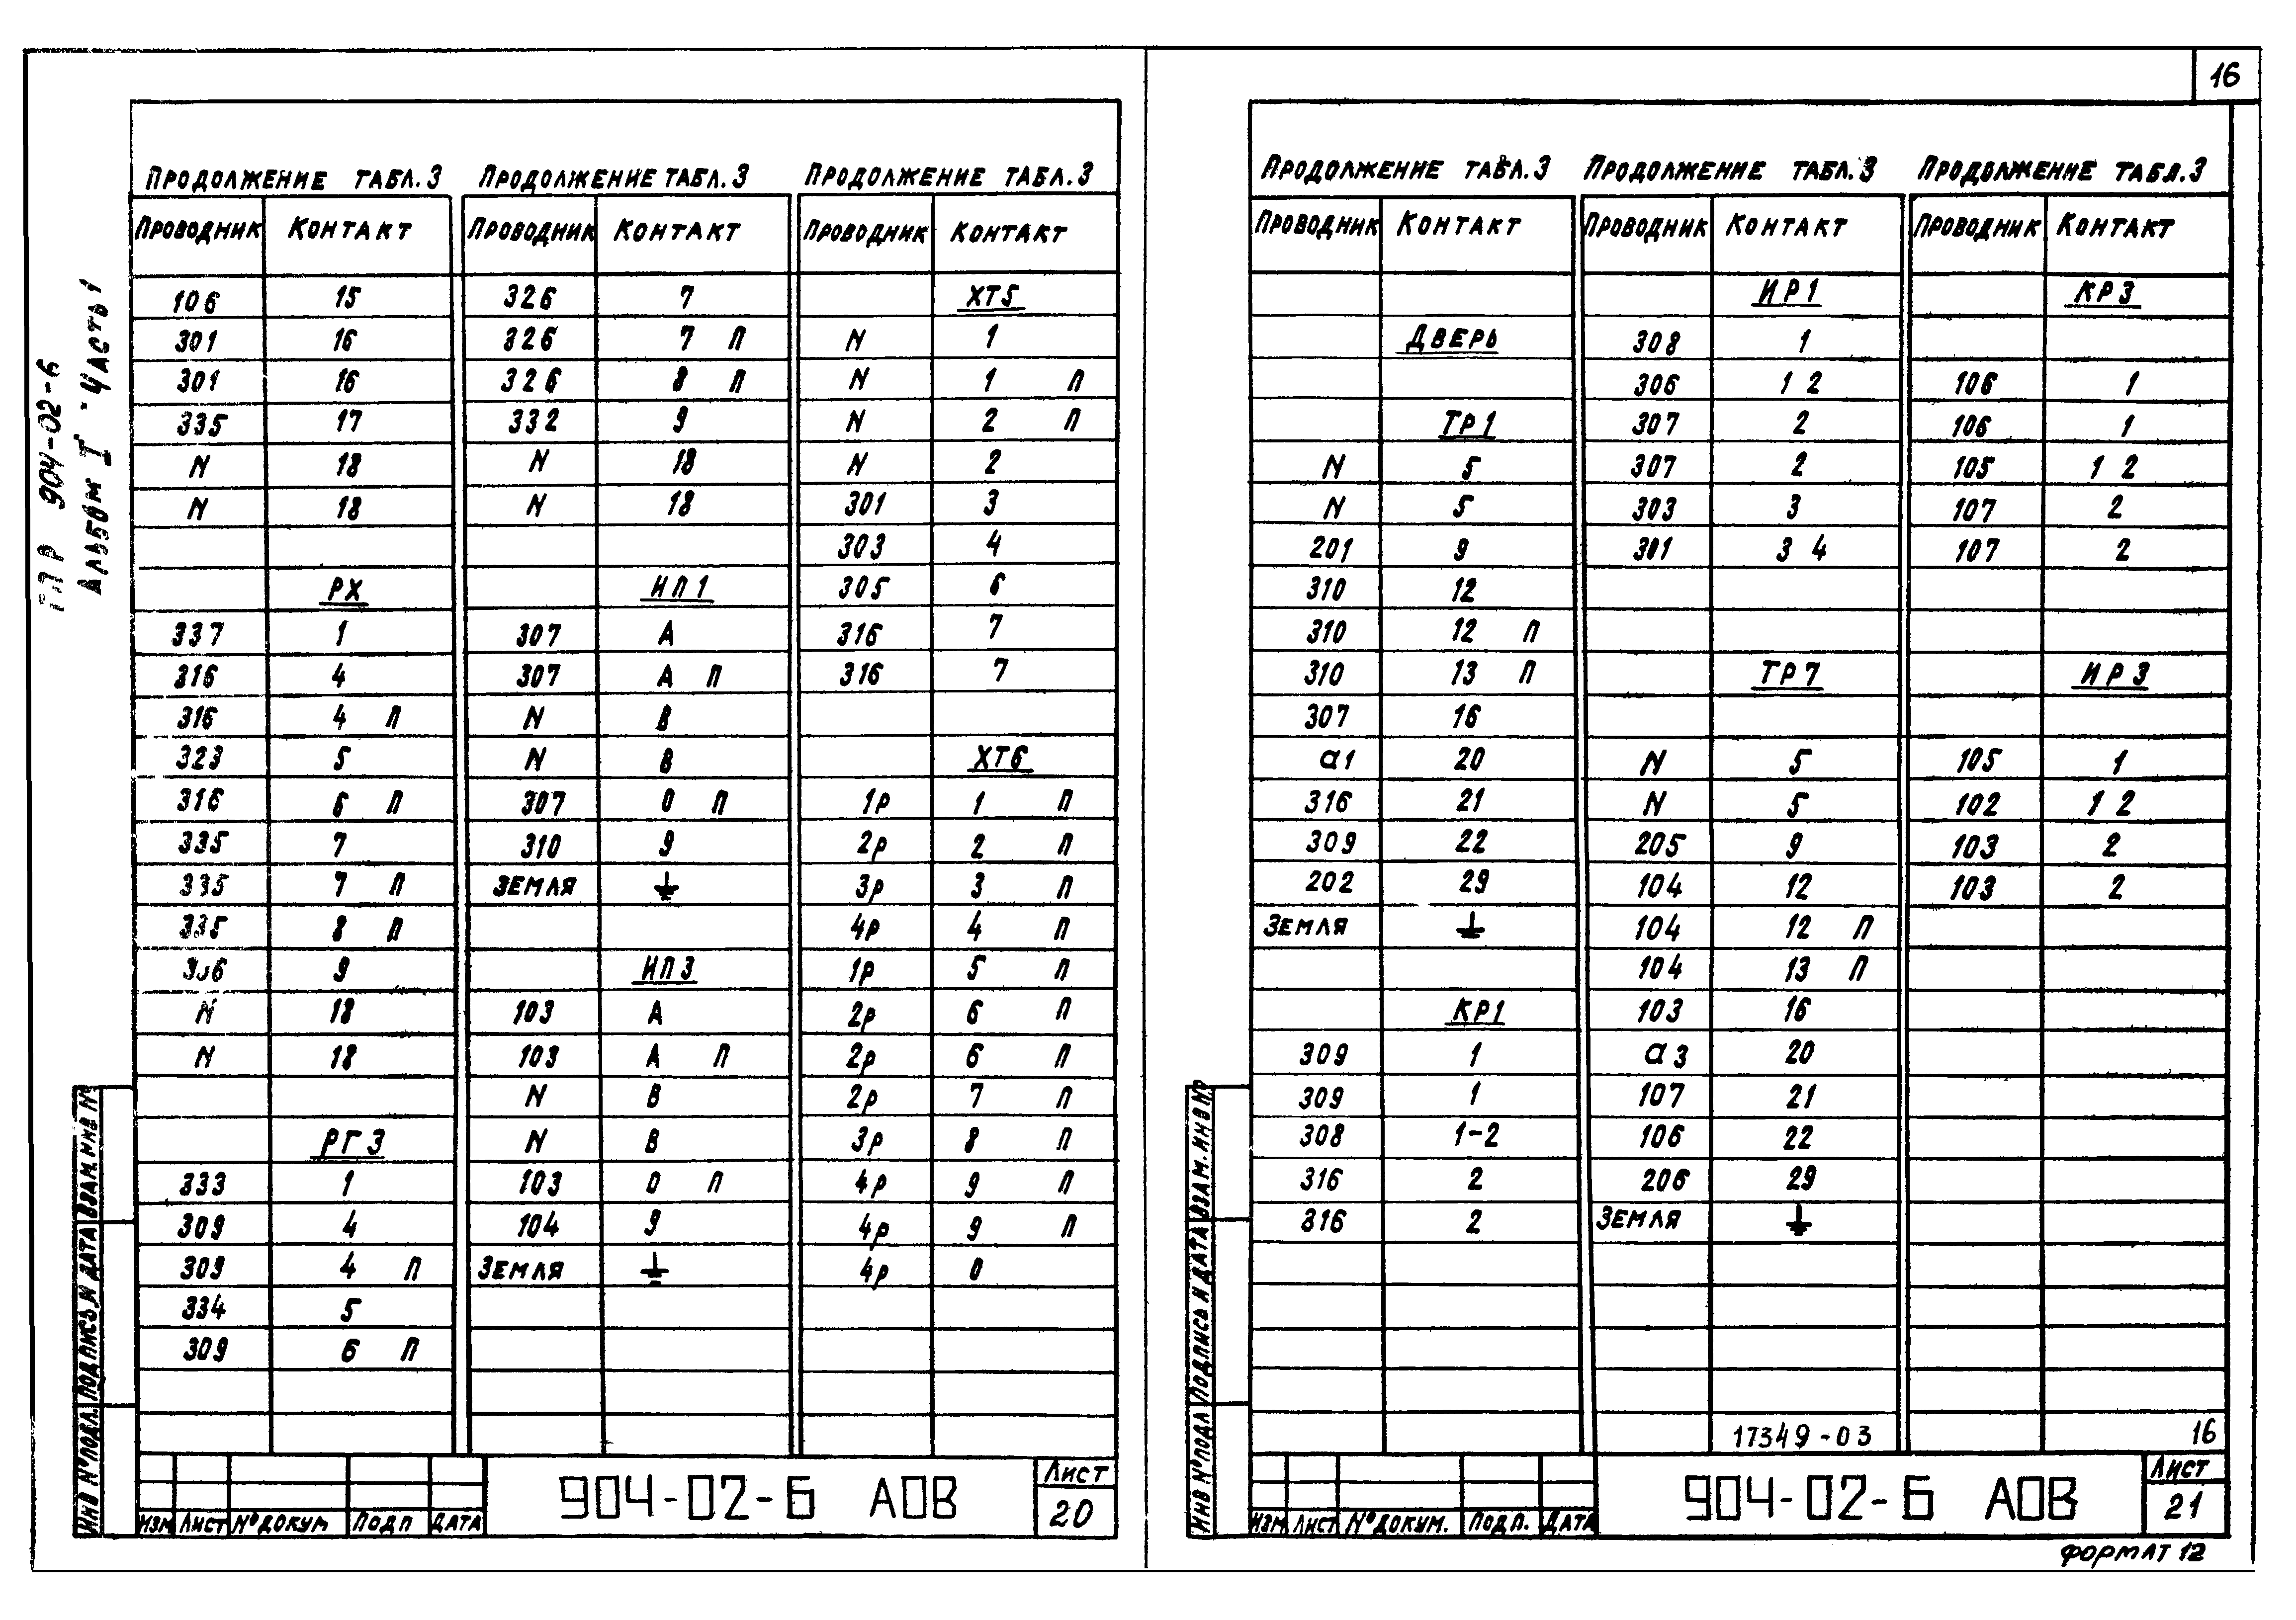 16
ТПР 904-02-6
Альбом I Часть 1
Продолжение табл.3 Продолжение табл.3 Продолжение табл.3
Проводник Контакт Проводник Контакт Проводник Контакт
106 15 326 7 ХТ5
301 16 326 7 П N 1
301 16 326 8 П N 1 П
335 17 332 9 N 2 П
N 18 N 18 N 2
N 18 N 18 301 3
303 4
РХ ИП1 305 6
337 1 307 А 316 7
316 4 307 А П 316 7
316 4 П N В
323 5 N В ХТ6
316 6 П 307 0 П 1р 1 П
335 7 310 9 2р 2 П
335 7 П Земля ⏚ 3р 3 П
335 8 П 4р 4 П
306 9 ИП3 1р 5 П
N 18 103 А 2р 6 П
N 18 103 А П 2р 6 П
N В 2р 7 П
РГ3 N В 3р 8 П
333 1 103 0 П 4р 9 П
309 4 104 9 4р 9 П
309 4 П Земля ⏚ 4р 0
334 5
309 6 П
904-02-6 АОВ
Лист
20
Изм Лист № докум Подп Дата
Инв № подл. Подпись и дата Взам. инв №
Продолжение табл.3 Продолжение табл.3 Продолжение табл.3
Проводник Контакт Проводник Контакт Проводник Контакт
ИР1 КР3
Дверь 308 1
306 1 2 106 1
ТР1 307 2 106 1
N 5 307 2 105 1 2
N 5 303 3 107 2
201 9 301 3 4 107 2
310 12
310 12 П
310 13 П ТР7 ИР3
307 16
а1 20 N 5 105 1
316 21 N 5 102 1 2
309 22 205 9 103 2
202 29 104 12 103 2
Земля ⏚ 104 12 П
104 13 П
КР1 103 16
309 1 а3 20
309 1 107 21
308 1-2 106 22
316 2 206 29
316 2 Земля ⏚
17349-03 16
904-02-6 АОВ
Лист
21
Изм Лист № докум. Подп. Дата
Инв № подл Подпись и дата Взам. инв №
Формат 12